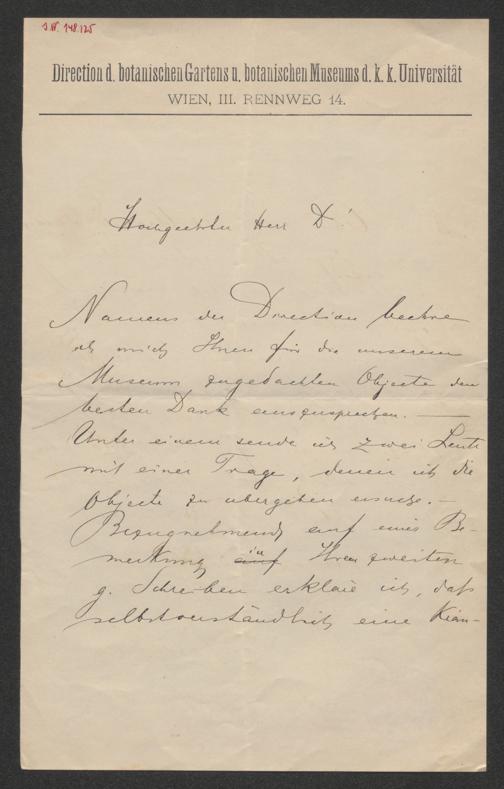 J.N. 148.125
Direction d. botanischen Gartens u. botanischen Museums d. k. k. Universität
WIEN, III. RENNWEG 14.
Hochgeehrter Herr Dr!
Namens der Direction beehre
ich mich Ihnen für die unserem
Museum zugedachten Objecte den
besten Dank auszusprechen. —
Unter einem sende ich zwei Leute
mit einer Trage, denen ich die
Objecte zu übergeben ersuche. —
Bezugnehmend auf eine Be-
merkung auf in Ihrem zweiten
g. Schreiben erkläre ich, daß
selbstverständlich eine